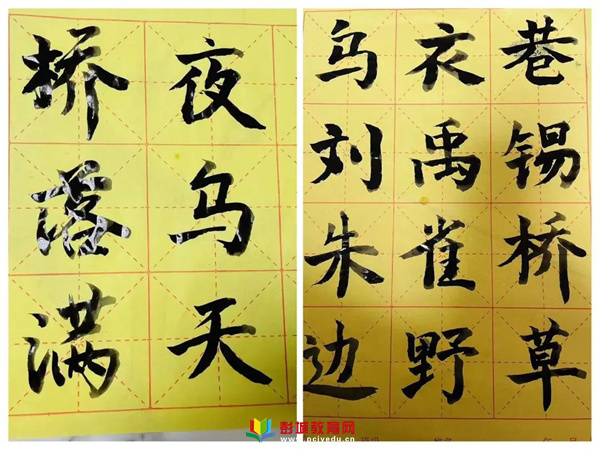 桥夜
落乌
满天
乌衣巷
刘禹锡
朱雀桥
边野草
彭城教育网
www.pcjyedu.cn